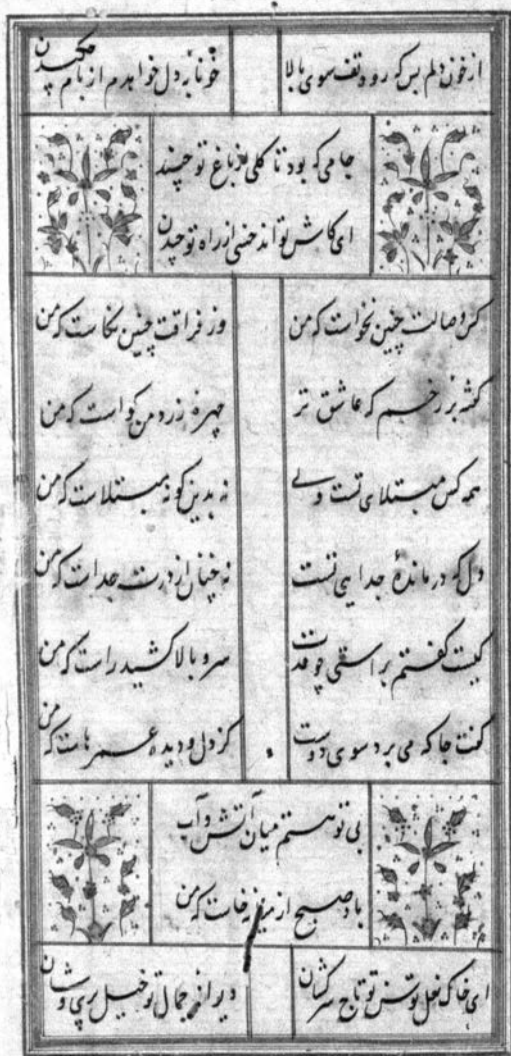 از خون دلم بس که رود تف سوی بالا خونابه دل خواهدم از بام چکیدن
جامی که بود تا گلی از باغ تو چیند
ای کاش تواند خسی از راه تو چیدن
کز وصالت چنین نخواست که من وز فراقت چنین نکاست که من
گفته بر رخم که عاشق تر چهره زرد من گواست که من
همه کس مبتلای تست ولی نه بدین گونه مبتلاست که من
دل که درمانده جدایی تست نه چنان از درت جداست که من
کیست گفتم براستی چو قدت سرو بالا کشید راست که من
کیت جا که می برد سوی دوست کز دل و دیده عمرهاست که من
بی تو هستم میان آتش و آب
باد صبح از میانه خاست که من
ای خاک نعل توسن تو تاج سرکشان دیوانه جمال تو خیل پری وشان